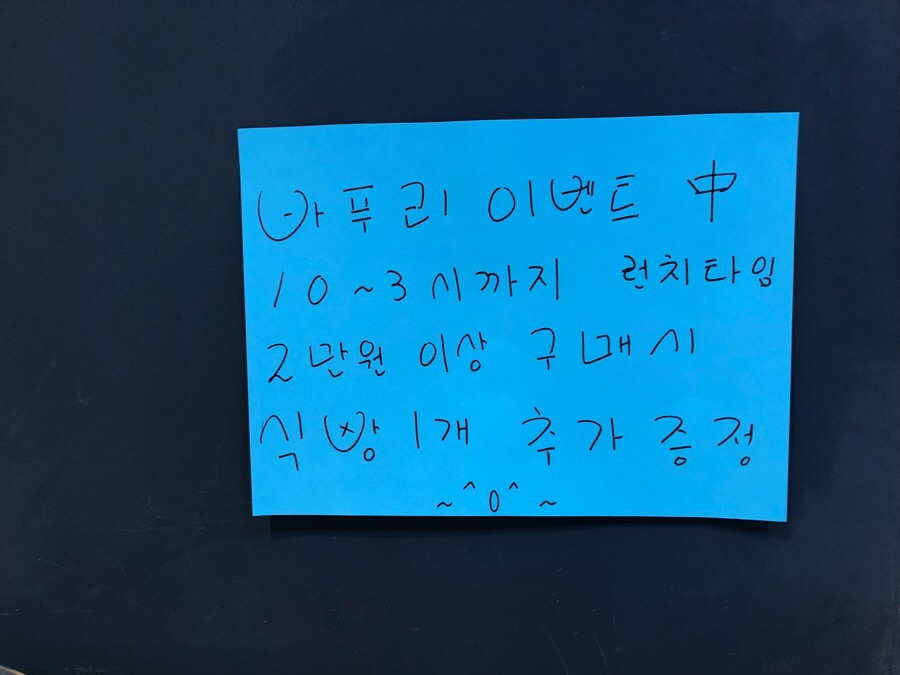 바푸리 이벤트 中
10~3시까지 런치타임
2만원 이상 구매시
식빵1개 추가 증정
~^0^~